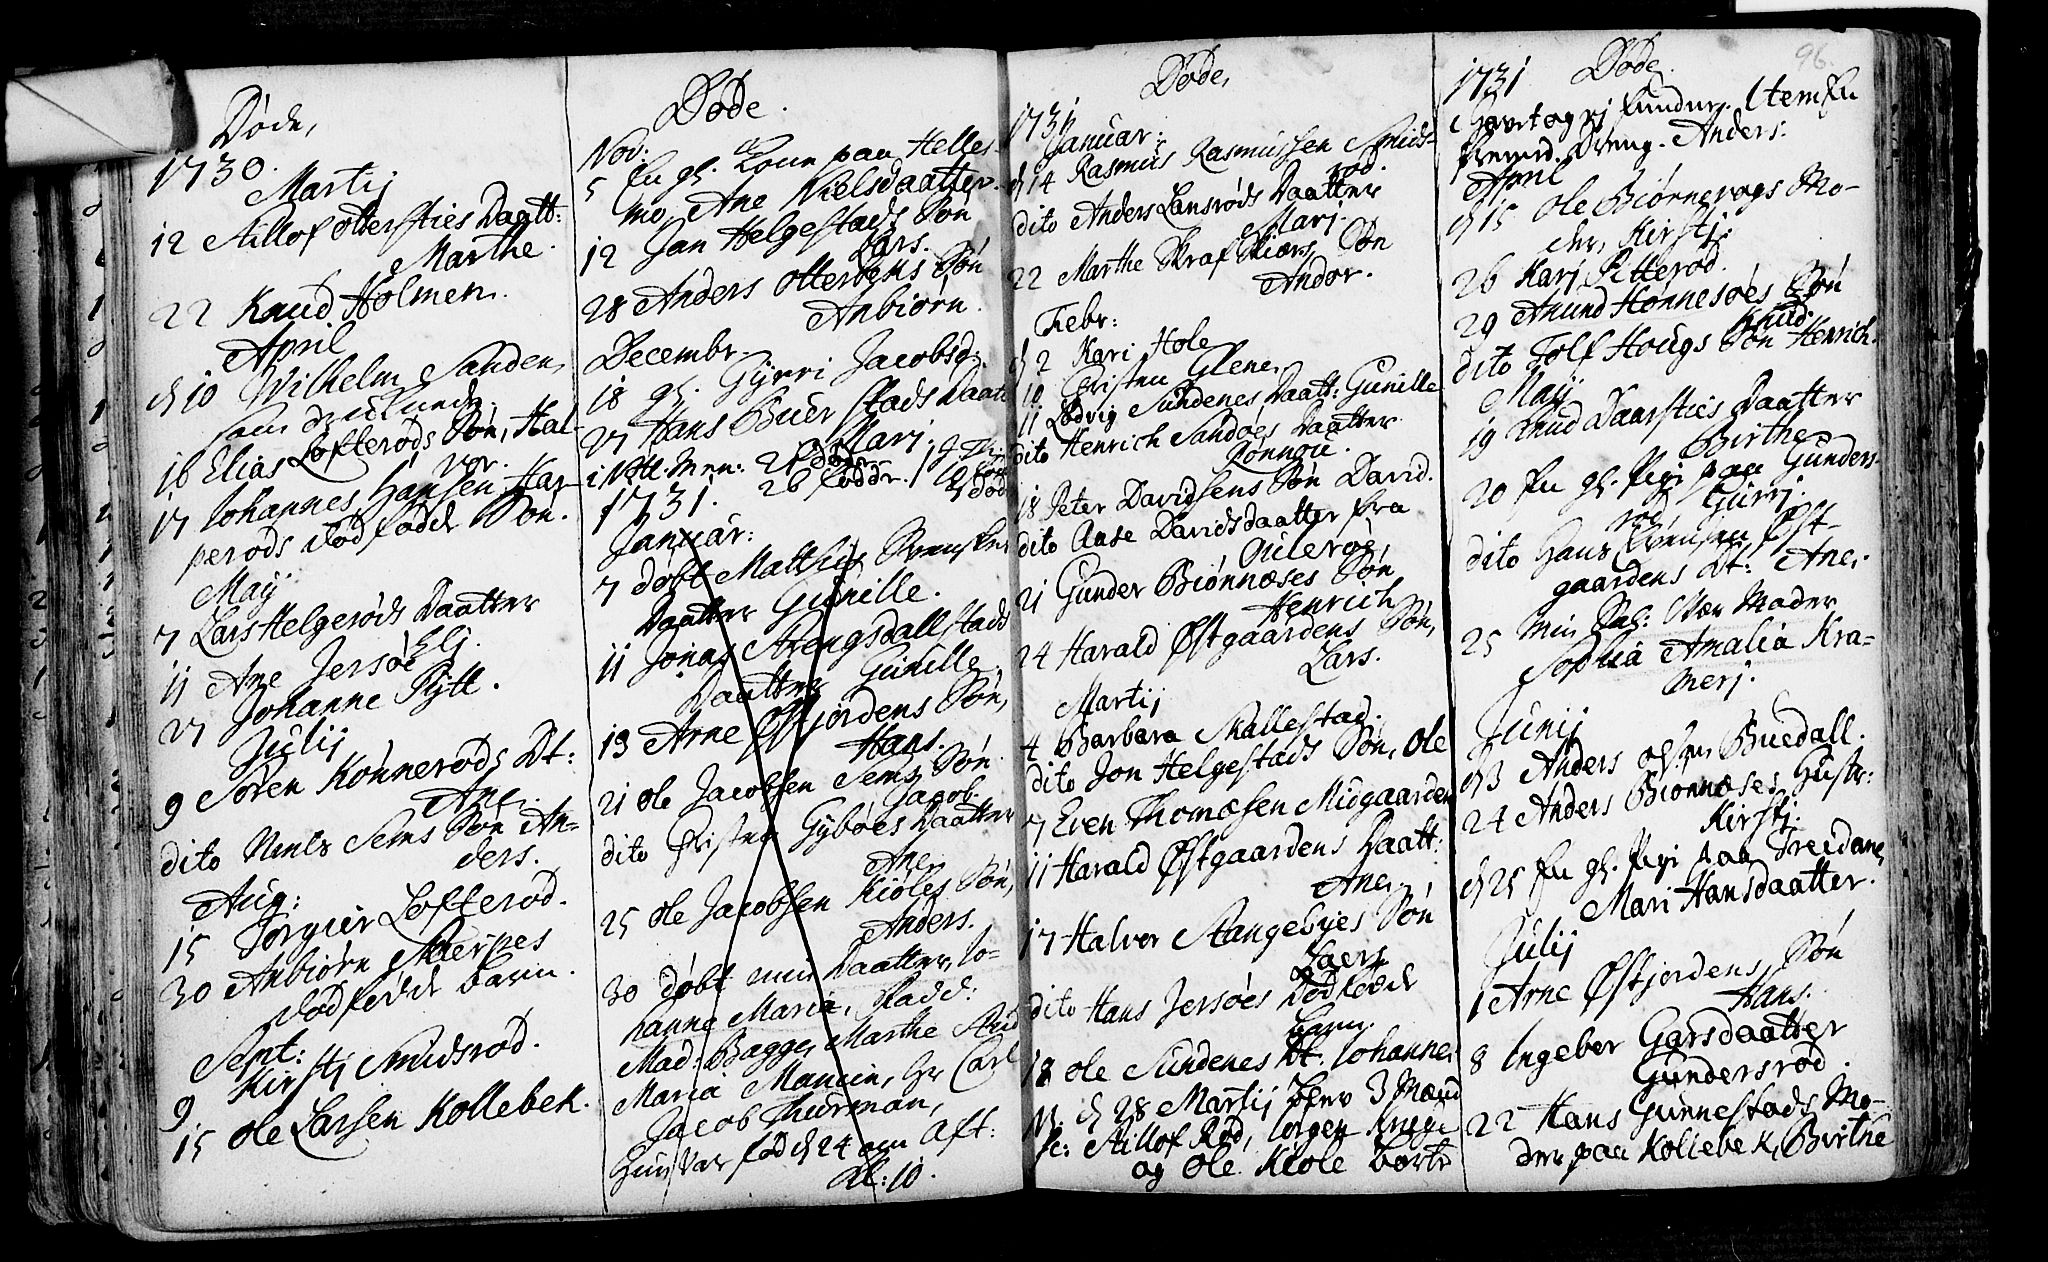 Døde,
1730.
Martij
12 Aillof ottersties Daatt:
Marthe.
22 Knud Holmen.
April
d 10 Wilhelm Sanden,
som druknede.
16 Elias Løfterøds Søn, Hal-
vor.
17 Johannes Hansen Har-
perøds død fødde Søn.
May
7 Lars Helgerøds Daatter
Elj.
11 Ane Jersøe
27 Johanne Pytt.
Julij
9 Søren Kønnerøds Dt:
Ane.
dito Niels Sems Søn An-
ders.
Aug:
15 Torgier Løfterød.
30 Anbiørn Skierpes
dødfødde barn.
Sept:
9 Kirsti Smidsrød.
15 Ole Larsen Kollebek.
Døde.
Nov:
5 En gl. Kone paa Helle-
mo, Ane Nielsdaatter.
12 Jan Helgestads Søn
Lars.
28 Anders Otterbeks Søn
Anbiørn.
Decembr.
18 gl. Gyrri Jacobsd:
27 Hans Buerstads Daatt
Marj.
26 fødde.
1731.
Januar:
7 døbt Matthis Svenskes
Daatter Gunille.
11 Jonas Strengsdallstads
Daatter Gunille.
13 Arne Østjordens Søn,
Hans.
21 Ole Jacobsen Sems Søn
Jacob
dito Christen Gybøes Daatter
Ane
25 Ole Jacobsen Kiøles Søn,
Anders.
30 døbt min Daatter, Jo-
hanne Maria, Fadd:
Mad: Bagge, Marthe
Maria Mancin, Hr Carl
Jacob Thurman,
hun var fød d 24 om Aft:
Kl: 10.
Døde,
1731
Januar:
d 14 Rasmus Rasmussen Smids-
rød.
dito Anders Lansrøds Daatter
Marj.
22 Marthe Skrafskiærs Søn
Andor.
Febr:
d 2 Kari Hole
10 Christen Glene,
11 Lodvig Sundenes Daatt: Gunille
dito Henrich Sandøes Daatter
Rønnou.
18 Peter Davidsens Søn David.
dito Aase Davidsdaatter fra
Oulerøe,
21 Gunder Biønnæses Søn
Henrich
24 Harald Østgaardens Søn,
Lars.
Martij
4 Barbara Skallestad.
dito Jon Helgestads Søn, Ole
7 Even Thomæsen Midgaarden
11 Harald Østgaardens Daatt:
Ane.
17 Halvor Stangebyes Søn
Laers
dito Hans Jersøes Dødfødde
barn.
18 Ole Sundenes Dt. Johanne.
d 28 Martij blev 3 Mænd
Aillof Rød, Jørgen
og Ole Kiøle borte
96.
1731 Døde
Item En
fremd. Dreng. Anders.
April
d 15 Ole Biørnevogs Mo-
der, Kirstj.
26 Karj Pitterød.
29 Anund Honnesøes Søn
Knud.
dito Tolf Hougs Søn Henrich.
May
19 Knud Daarsties Daatter
Birthe
20 En gl. Pigi paa Gunders-
rød Gurrj.
dito Hans Evensen Øst-
gaardens Dt: Ane.
25 Min Sal: Vær Moder
Sophia Amalia Kra-
merj.
Junij
d 3 Anders Olsen Buedall.
24 Anders Biønnæses Hustr:
Kirstj.
d 25 En gl. Pigi paa Treidene,
Mari Hansdaatter.
Julij
1 Arne Østjordens Søn
Hans.
8 Ingeber Garsdaatter
Gundersrød.
22 Hans Gunnestads Mo-
der paa Kollebek, Birthe